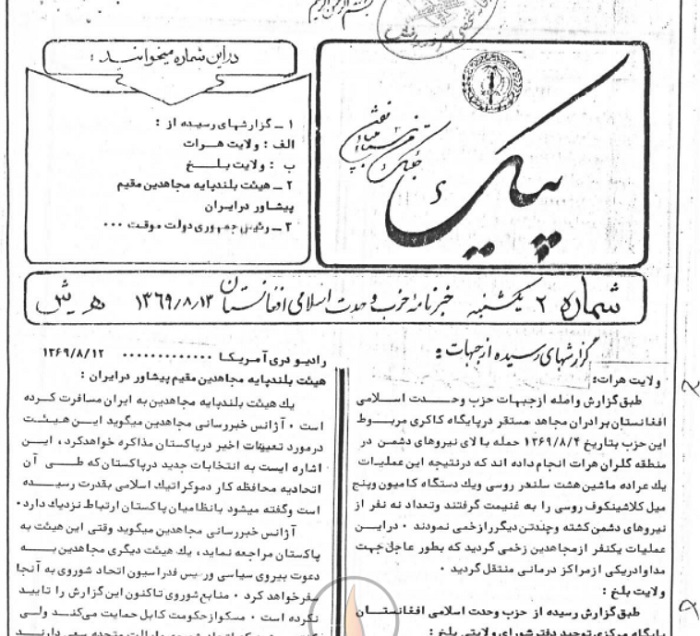 در این شماره میخوانید :
۱ ــ گزارشهای رسیده از :
الف : ولایت هرات
ب : ولایت بلخ
۲ ــ هیئت بلندپایه مجاهدین مقیم
پیشاور در ایران
۳ ــ رئیس جمهوری دولت موقت ...
پیک
شماره ۲ یکشنبه خبرنامهٔ حزب وحدت اسلامی افغانستان ۱۳۶۹/۸/۱۳ هـ ش
گزارشهای رسیده از جبهات :
ولایت هرات:
طبق گزارش واصله از جبهات حزب وحدت اسلامی
افغانستان برادران مجاهد مستقر در پایگاه کاکری مربوط
این حزب بتاریخ ۱۳۶۹/۸/۴ حمله بالای نیروهای دشمن در
منطقه گلران هرات انجام داده اند که در نتیجه این عملیات
یک عراده ماشین هشت سلندر روسی ویک دستگاه کامیون وپنج
میل کلاشینکوف روسی را به غنیمت گرفتند وتعداد نه نفر از
نیروهای دشمن کشته وچندتن دیگر رازخمی نمودند ۰ در این
عملیات یکنفر ازمجاهدین زخمی گردید که بطور عاجل جهت
مداوا دریکی ازمراکز درمانی منتقل گردید ۰
ولایت بلخ :
طبق گزارش رسیده از حزب وحدت اسلامی افغانستان
پایگاه مرکزی توحید دفتر شورای ولایتی بلخ :
رادیو دری آمریکا ............ ۱۳۶۹/۸/۱۲
هیئت بلندپایه مجاهدین مقیم پیشاور در ایران :
یک هیئت بلندپایه مجاهدین به ایران مسافرت کرده
است ۰ آژانس خبررسانی مجاهدین میگوید این هیئت
درمورد تعییات اخیر در پاکستان مذاکره خواهدکرد ، این
اشاره ایست به انتخابات جدید در پاکستان که طی آن
اتحادیه محافظه کار دموکراتیک اسلامی بقدرت رسیده
است وگفته میشود بانظامیان پاکستان ارتباط نزدیک دارد۰
آژانس خبررسانی مجاهدین میگوید وقتی این هیئت به
پاکستان مراجعه نماید ، یک هیئت دیگری مجاهدین به
دعوت بیروی سیاسی ورئیس فدراسیون اتحاد شوروی به آنجا
سفرخواهد کرد ۰ منابع شوروی تاکنون این گزارش را تایید
نکرده است ۰ مسکو ازحکومت کابل حمایت میکند ولی